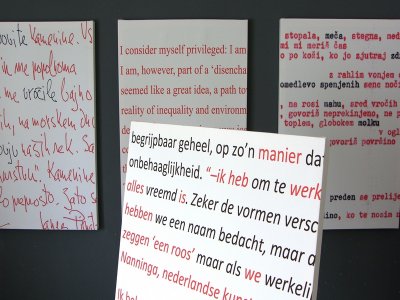 ovite Kamenine. Vs
me popolnoma
me vročile bujno
ih, na morskem dnu
vaših nek. Sa
Kamenine
neprosto. Zato s
I consider myself privileged: I am
I am, however, part of a 'disencha
seemed like a great idea, a path to
reality of inequality and environm
stopala, meča, stegna, ned
mi mi meriš čas
o po koži, ko jo ajutraj zd
z rahlim vonjem
omedlevo spenjenih senc nočі
, na rosi mahu, sred vročih
, govoriš neprekinjeno, ne p
toplem, globokem molku
v
govoriš površino
preden se prelije
ino, ko te nosim
begrijpbaar geheel, op zo'n manier dat
onbehaaglijkheid. "–ik heb om te werk
alles vreemd is. Zeker de vormen versc
hebben we een naam bedacht, maar a
zeggen 'een roos' maar als we werkeli
Nanninga, nederlandse kuns
Ik he